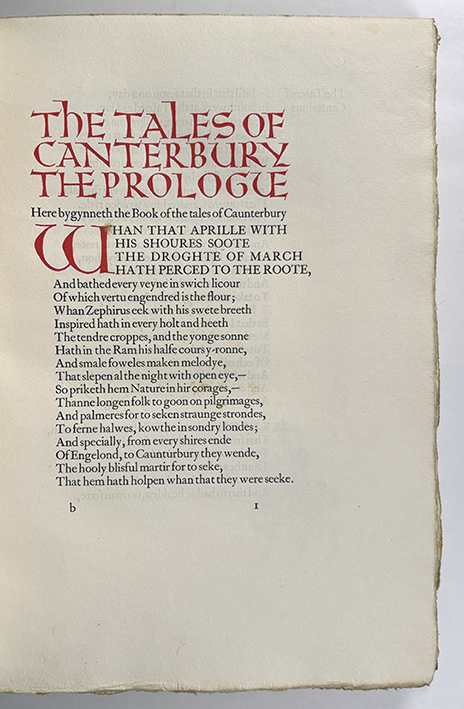 THE TALES OF
CANTERBURY
THE PROLOGUE
Here bygynneth the Book of the tales of Caunterbury
WHAN THAT APRILLE WITH
HIS SHOURES SOOTE
THE DROGHTE OF MARCH
HATH PERCED TO THE ROOTE,
And bathed every veyne in swich licour
Of which vertu engendred is the flour;
Whan Zephirus eek with his swete breeth
Inspired hath in every holt and heeth
The tendre croppes, and the yonge sonne
Hath in the Ram his halfe cours y-ronne,
And smale foweles maken melodye,
That slepen al the night with open eye,—
So priketh hem Nature in hir corages,—
Thanne longen folk to goon on pilgrimages,
And palmeres for to seken straunge strondes,
To ferne halwes, kowthe in sondry londes;
And specially, from every shires ende
Of Engelond, to Caunterbury they wende,
The hooly blisful martir for to seke,
That hem hath holpen whan that they were seeke.
b 1